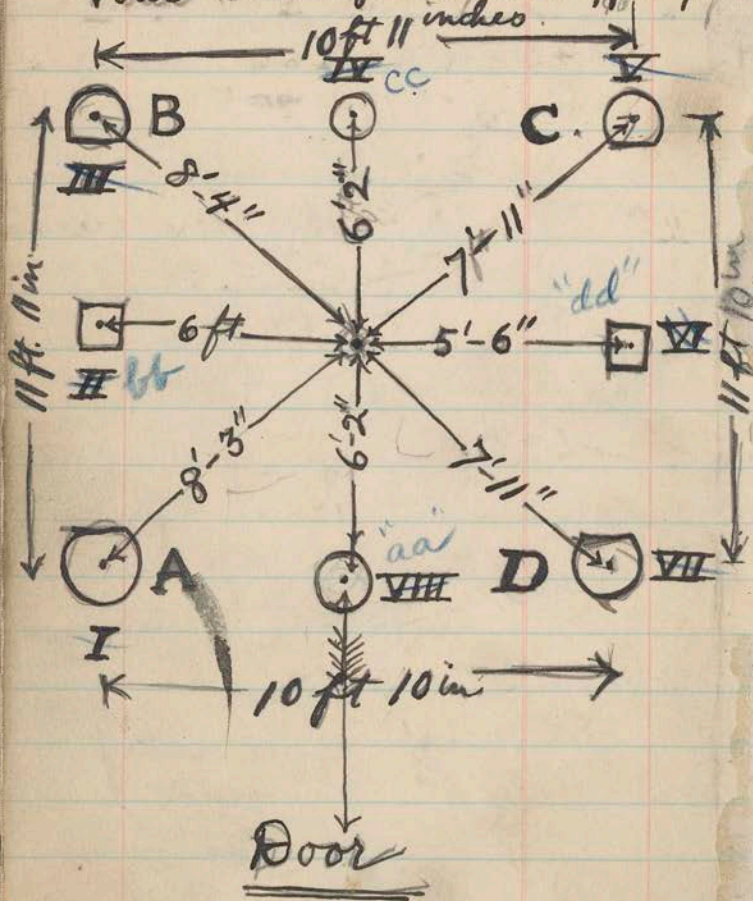 10 ft 11 inches.
IV cc
V
B
C.
III
8'-4"
6'2"
7'-11"
11 ft. 11 in
"dd"
11 ft 10 in
6 ft
5'-6"
VI
II bb
8'-3"
6'-2"
7'-11"
"aa"
A
VIII
D
VII
I
10 ft 10 in
Door